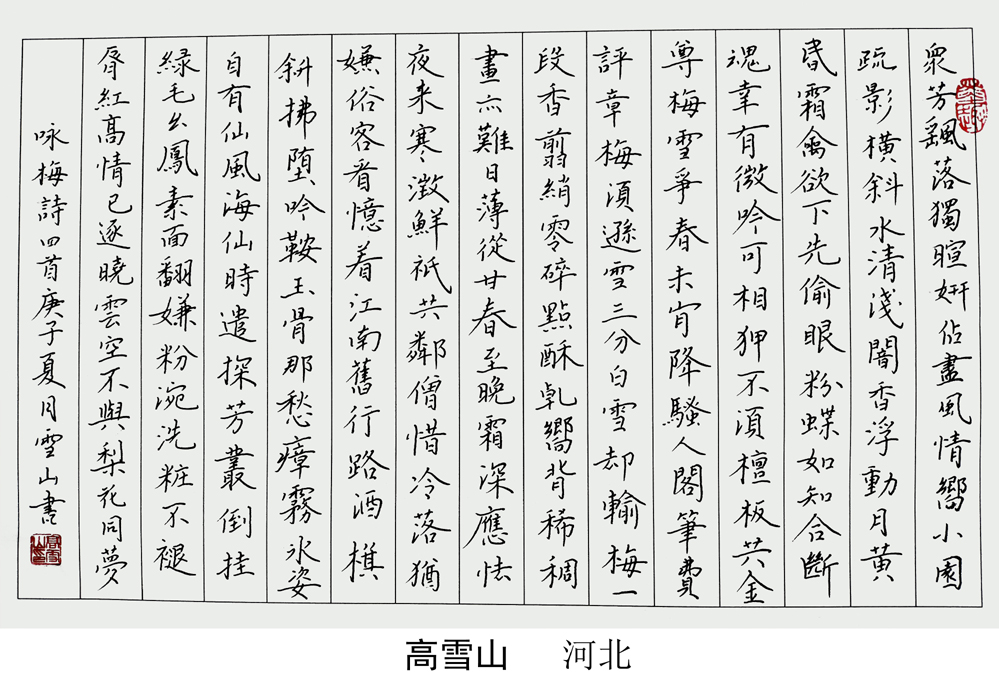 衆芳飄落獨暄妍佔盡風情嚮小園
疏影橫斜水清淺闇香浮動月黃
昏霜禽欲下先偷眼粉蝶如知合斷
魂幸有微吟可相狎不須檀板共金
尊梅雪爭春未肎降騷人閣筆費
評章梅須遜雪三分白雪却輸梅一
段香翦綃零碎點酥乾嚮背稀稠
畫亦難日薄從甘春至晚霜深應怯
夜来寒澂鮮祇共鄰僧惜冷落猶
嫌俗客看憶着江南舊行路酒旗
斜拂堕吟鞍玉骨那愁瘴霧氷姿
自有仙風海仙時遣探芳叢倒挂
緑毛幺鳳素面翻嫌粉涴洗粧不褪
脣紅高情已逐曉雲空不與梨花同夢
咏梅詩四首庚子夏月雪山書
高雪山 河北